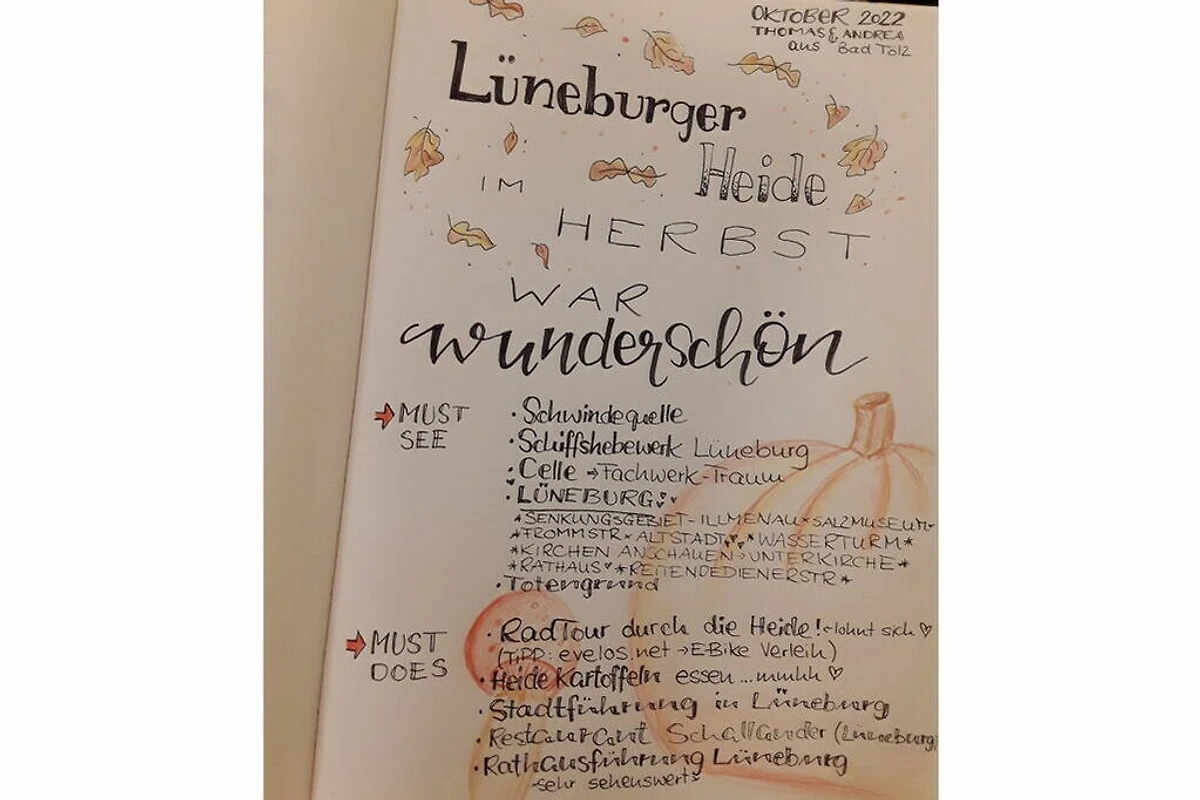 OKTOBER 2022
THOMAS & ANDREA
aus Bad Tölz
Lüneburger
Heide
IM
HERBST
WAR
wunderschön
MUST
SEE
· Schwindequelle
· Schiffshebewerk Lüneburg
· Celle → Fachwerk-Traum
· LÜNEBURG
*SENKUNGSGEBIET-ILLMENAU*SALZMUSEUM*
*FROMMSTR*ALTSTADT♥♥*WASSERTURM*
*KIRCHEN ANSCHAUEN → UNTERKIRCHE*
*RATHAUS♥*REITENDEDIENERSTR*
· Totengrund
MUST
DOES
· RadTour durch die Heide! ← lohnt sich ♡
(TIPP: evelos.net → E-Bike Verleih)
· Heide Kartoffeln essen ... mmhh ♡
· Stadtführung in Lüneburg
· Restaurant Schallander (Lüneburg)
· Rathausführung Lüneburg
sehr sehenswert